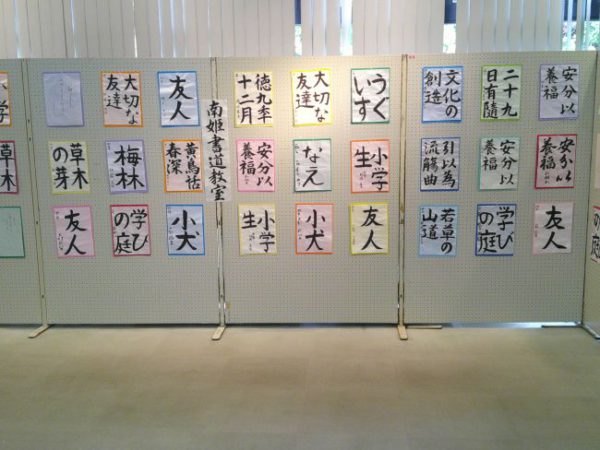 小学
草木
大切な
友達
友人
草木
の芽
梅林
春深
友人
学び
の庭
小犬
南姫書道教室
徳九年
十二月
大切な
友達
うぐ
いす
安分以
養福
なえ
小学
生
小学
生
小犬
友人
文化の
創造
二十九
日有隨
安分以
養福
引以為
流觴曲
安分以
養福
安分以
養福
若草の
山道
学び
の庭
友人